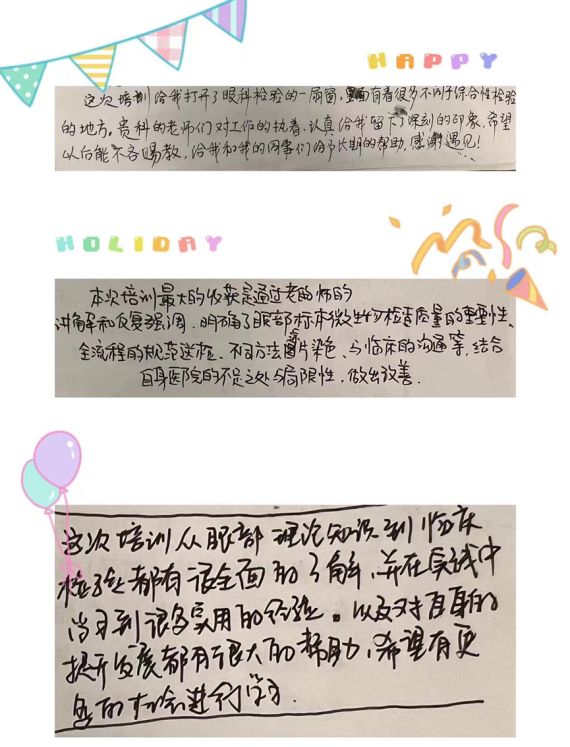 HAPPY
这次培训给我打开了眼科检验的一扇窗,里面有着很多不同于综合性检验
的地方。贵科的老师们对工作的执着、认真给我留下了深刻的印象,希望
以后能不吝赐教,给我和我的同事们给予长期的帮助,感谢遇见!
HOLIDAY
本次培训最大的收获是通过老师的
讲解和反复强调,明确了眼部标本微生物检查质量的重要性、
全流程的规范送检、不同方法图片染色、与临床的沟通等,结合
自身医院的不足之处与局限性,做出改善.
这次培训从眼部理论知识到临床
检验都有很全面的了解,并在实践中
学习到很多实用的经验。以及对自身的
提升发展都有很大的帮助,希望有更
多的机会进行学习.